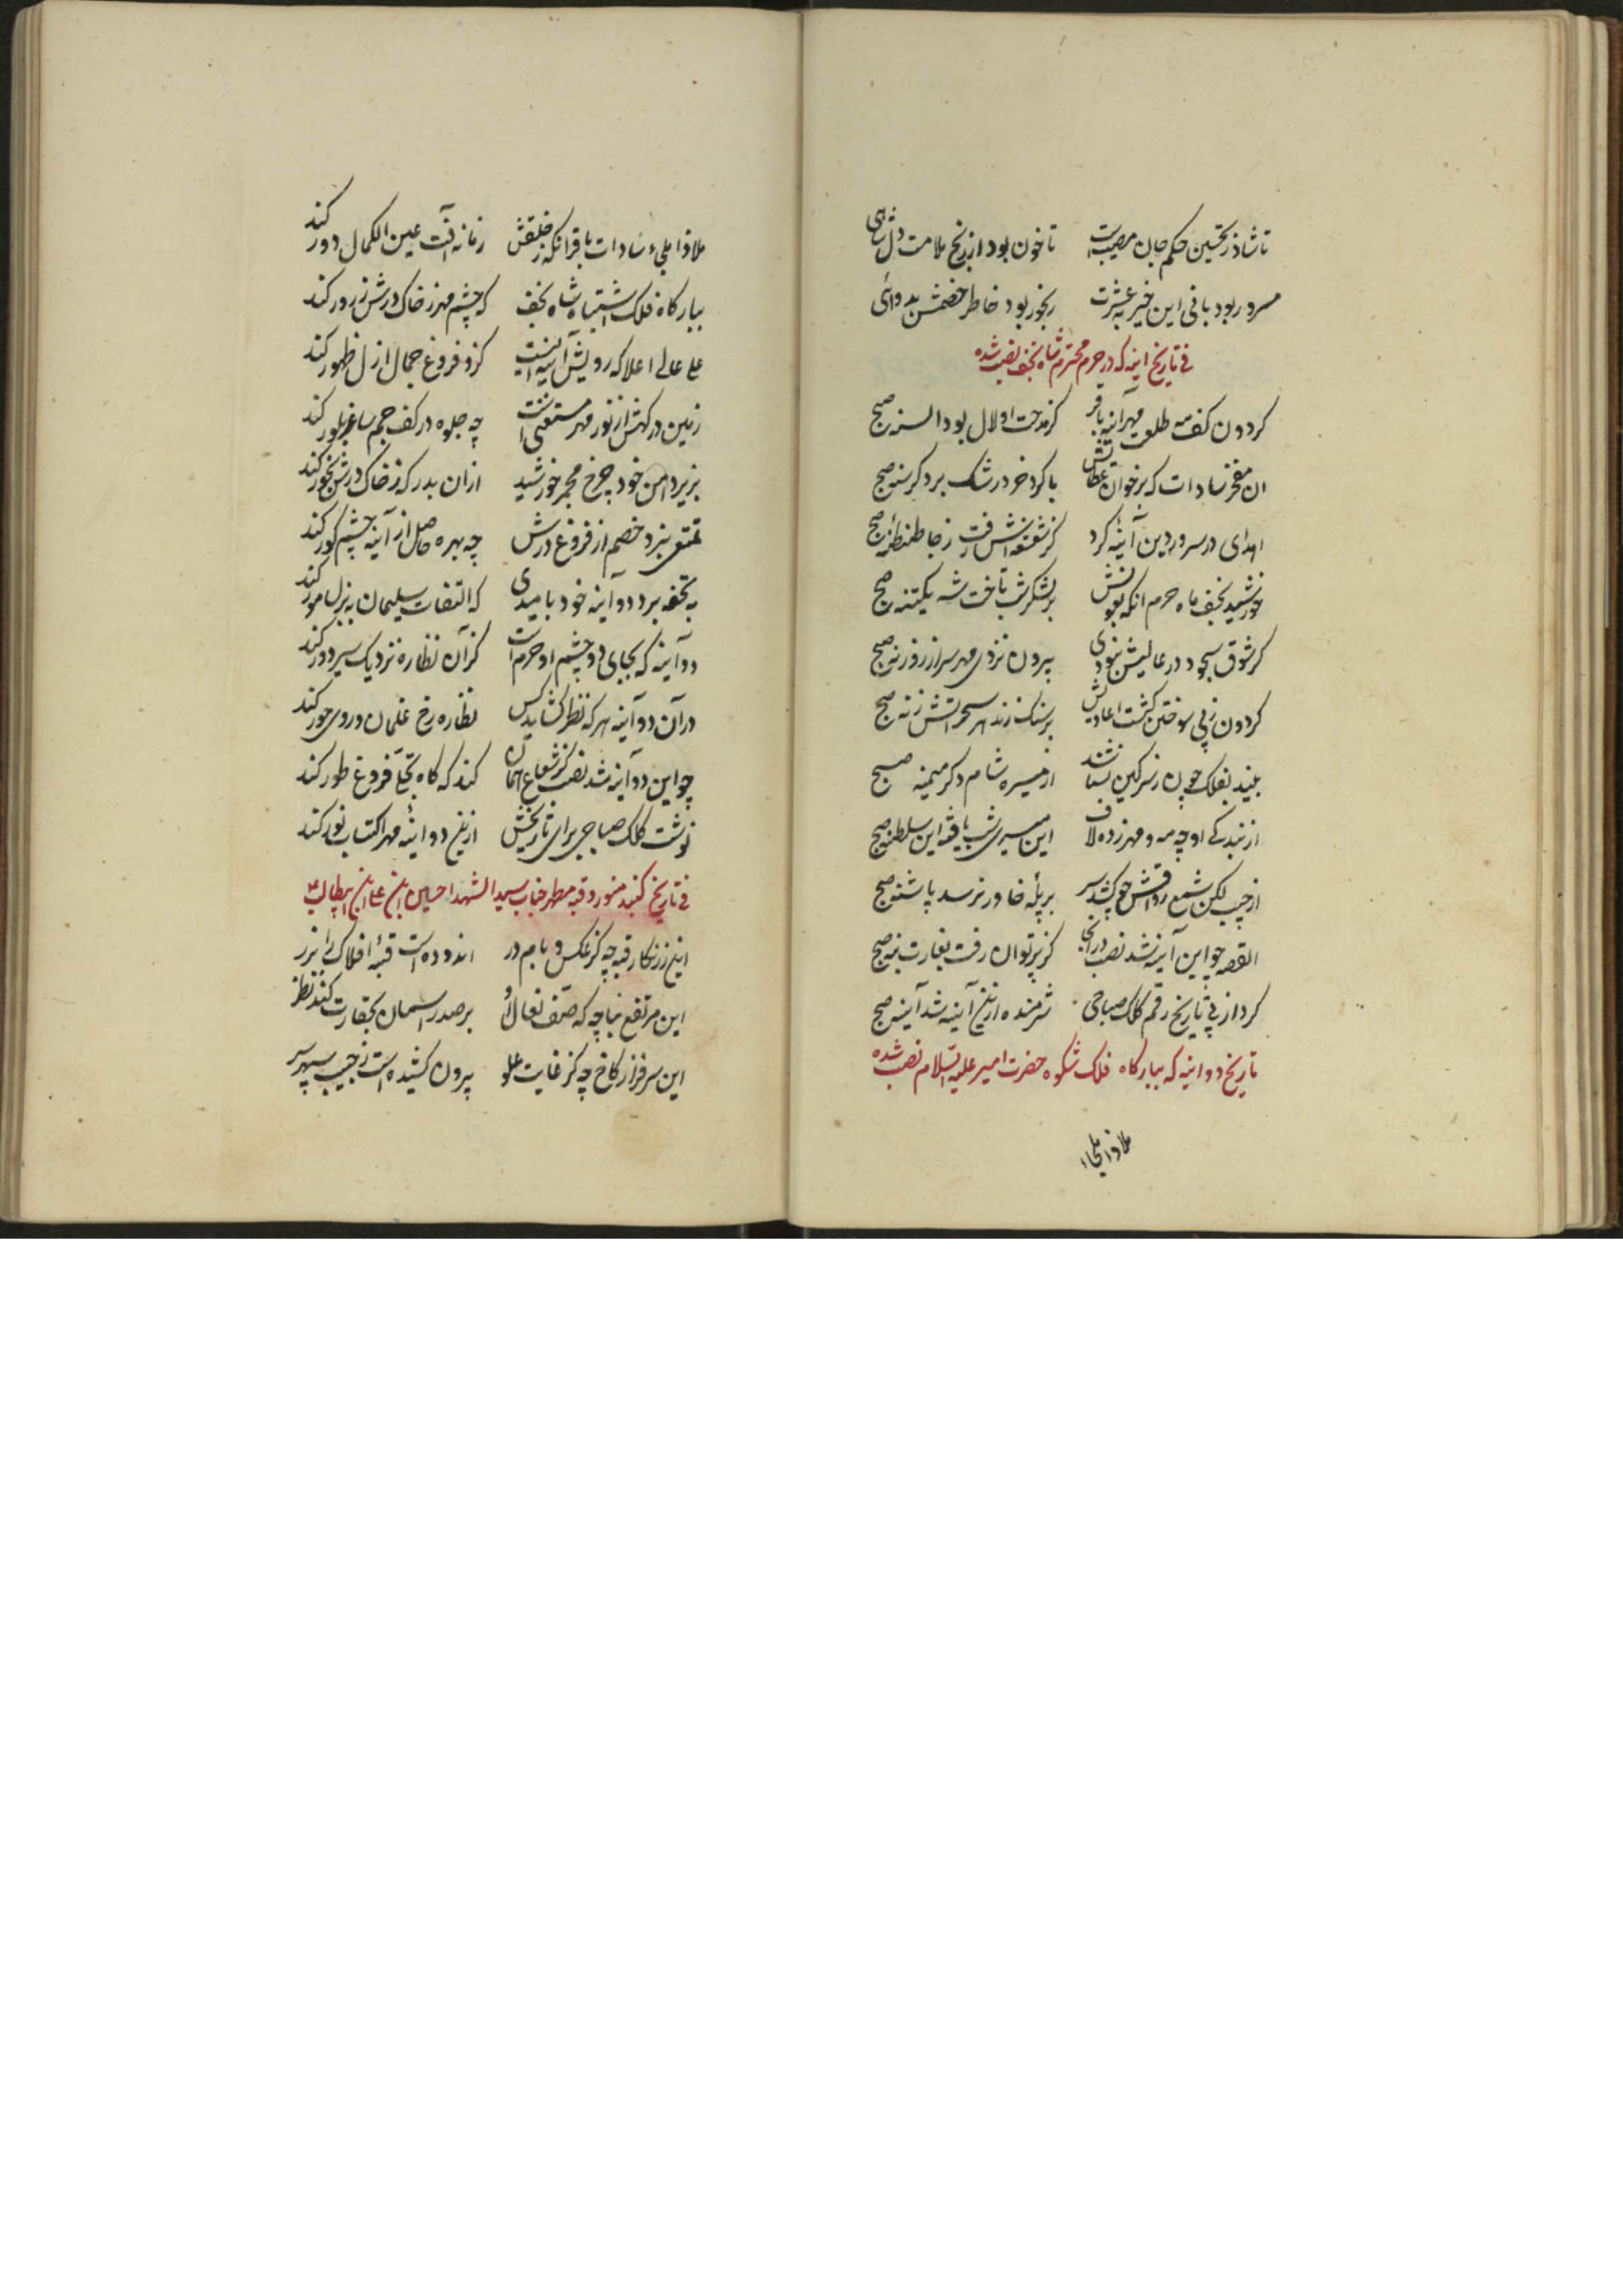 تا شاد ز تحسین حکم جان مصیب است تا خون بود از رنج ملامت دل
مسرور بود بانی این خیر به عشرت رنجور بود خاطر خصمش به دوائی
فی تاریخ اینه که در حرم محترم شاه نجف نصب شده
کردون کف مه طلعت مهر آینه باقر کز مدحت او لال بود السنه صبح
ان مفخر سادات که بر خوان عطایش با کرد خور درشک برد کرسنه صبح
اهدای در سرور دین آینهٔ کرد کز شعشعه‌اش رفت ز جا طنطنهٔ صبح
خورشید نجف ماه حرم انکه بعونش بر لشکر شب تاخت شه یکتنه صبح
کر شوق سجود در عالیش نبودی بیرون نزدی مهر سر از روزنه صبح
کردون ز پی سوختن کشت اعادیش بر سنک زند هر سحر اتش زنه صبح
بیند بفلک چون ز سر کین بستانند از میسره شام و کر میمنه صبح
از بندکی او چه مه و مهر زده لاف این میری شب یافته این سلطنه صبح
از جیب لکن شمع رواقش چو کشد سر بر پلهٔ خاور نرسد پاشنه صبح
القصه چو این آینه شد نصب در انجا کز پرتو ان رفت بغارت بنه صبح
کرد از پی تاریخ رقم کلک صباحی شرمنده ازین آینه شد آینه صبح
تاریخ دو اینه که ببارکاه فلک شکوه حضرت امیر علیه السلام نصب شده
ملاذ املجاء
ملاذ املجاء سادات باقر انکه ز خلقش زمانه آفت عین الکمال دور کند
ببارکاه فلک اشتباه شاه نجف که چشم مهر ز خاک درش زرور کند
علی عالی اعلا که رویش آینه ایست کزو فروغ جمال ازل ظهور کند
زمین درکهش از نور مهر مستغنی است چه جلوه در کف جم ساغر بلور کند
بزیر دامن خود چرخ مجمر خورشید ازان بدر که ز خاک درش بخور کند
تمتعی نبرد خصم از فروغ درش چه بهره حاصل از آینه چشم کور کند
به تحفه برد دو آینه خود بامیدی که التفات سلیمان به نزل مور کند
دو آینه که بجای دو چشم او حرم است کز آن نظاره نزدیک سیر دور کند
در آن دو آینه هر که نظر کشاید کس نظاره رخ غلمان و روی حور کند
چو این دو آینه شد نصب کز شعاع انها کند که کاه تجلّی فروغ طور کند
نوشت کلک صباحی برای تاریخش ازین دو اینه مهر اکتساب نور کند
فی تاریخ کنبد منور و قبه مطهر جناب سید الشهدا حسین ابن علی ابن ابیطالب ع
این زرنکار قبه چه کز عکس و بام در اندوده است قبهٔ افلاک را بزر
این مرتفع بنا چه که صف نعال او بر صدر اسمان بحقارت کند نظر
این سرفراز کاخ چه کز غایت علو بیرون کشیده است ز جیب سپهر سر